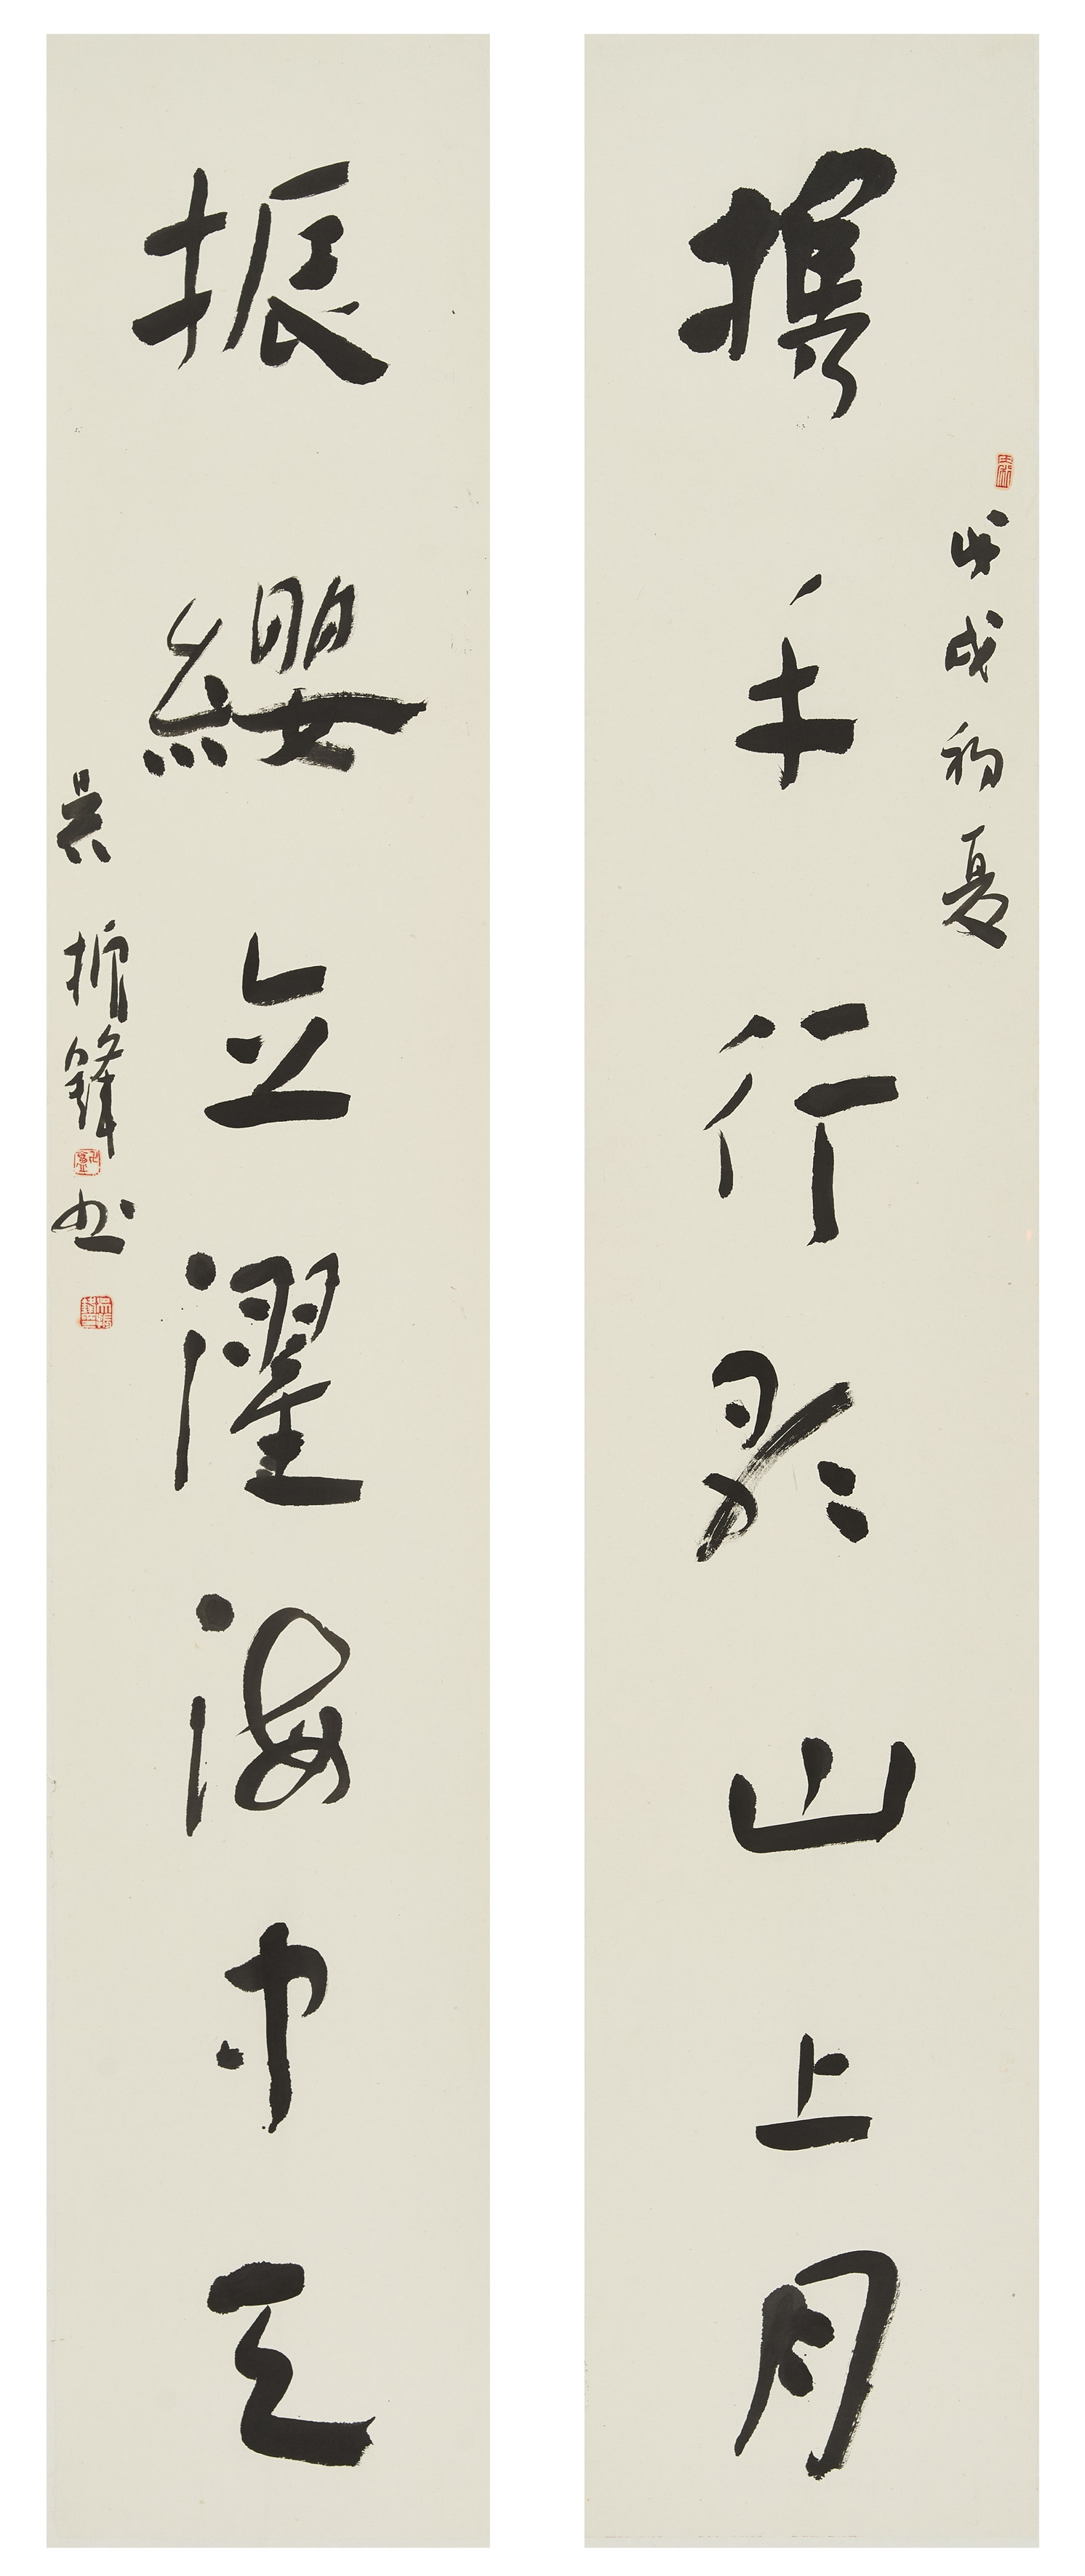 戊戌初夏
携手行歌山上月
振纓立濯海中天
吴振鋒书